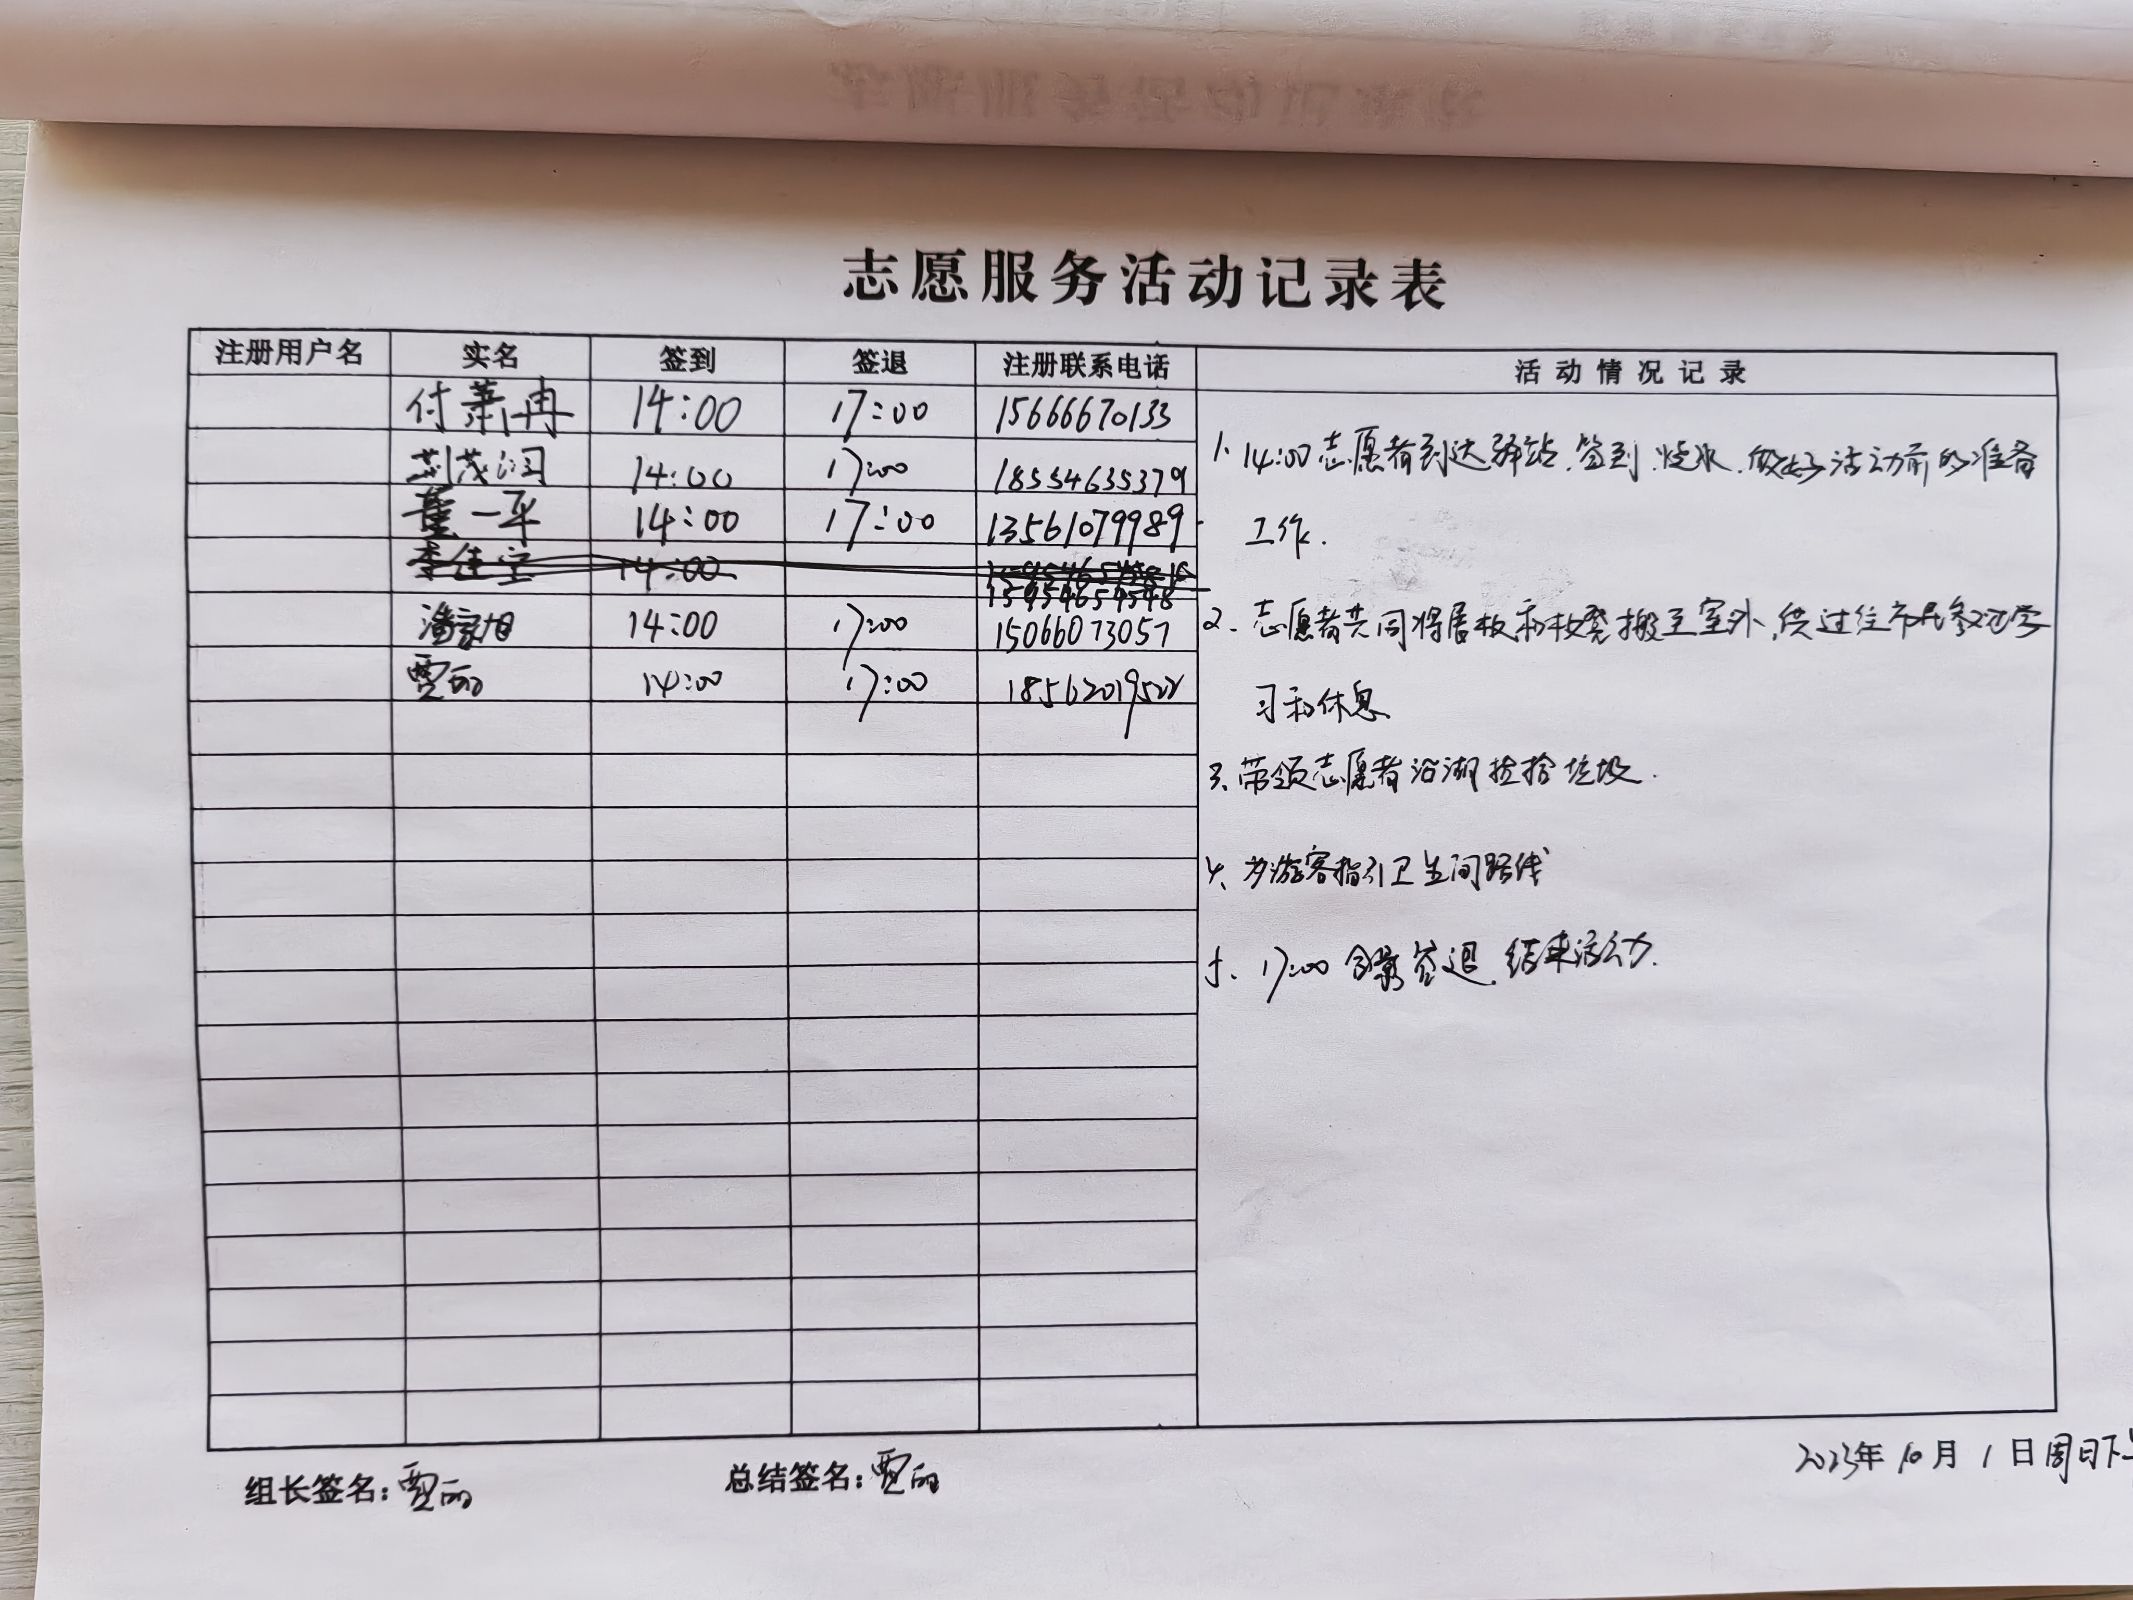 志愿服务活动记录表
注册用户名 实名 签到 签退 注册联系电话 活动情况记录
付萧冉 14:00 17:00 15666670133
茂润 14:00 17:00 18554635379
董一平 14:00 17:00 13561079989
李佳宝 14:00
15954654548
潘家旭 14:00 17:00 15066073057
贾丽 14:00 17:00 18562019522
1. 14:00志愿者到达驿站、签到、烧水、做好活动前的准备
工作.
2. 志愿者共同将展板和板凳搬至室外,供过往市民参观学
习和休息
3. 带领志愿者沿湖捡拾垃圾.
4、为游客指引卫生间路线
5、17:00 合影签退,结束活动.
组长签名:贾丽 总结签名:贾丽 2023年10月1日周日下